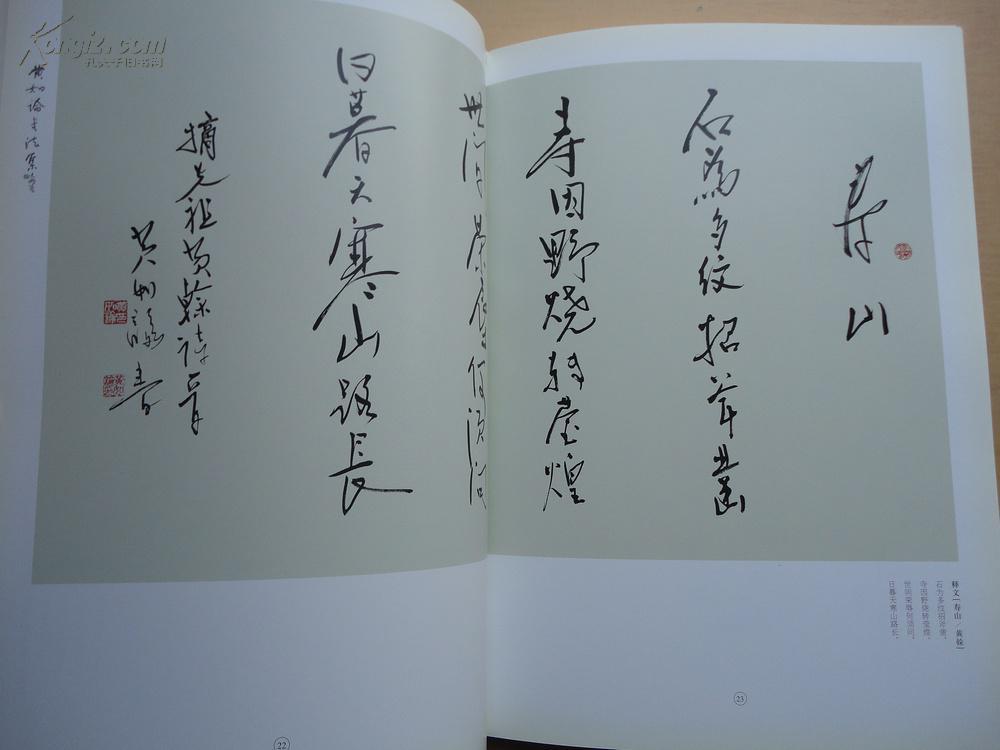 寿山
石為多纹招斧凿
寺因野烧转莹煌
世间荣辱何须问
日暮天寒山路長
摘先祖黄榦诗一首
黄如論書
释文[寿山/黄榦]
石为多纹招斧凿，
寺因野烧转莹煌。
世间荣辱何须问，
日暮天寒山路长。
23
22
黄如論书法集
Kongfz.com
孔夫子旧书网